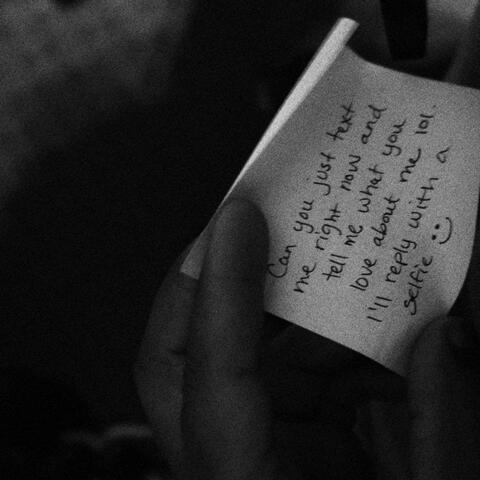 Can you just text
me right now and
tell me what you
love about me lol.
I'll reply with a
selfie :)